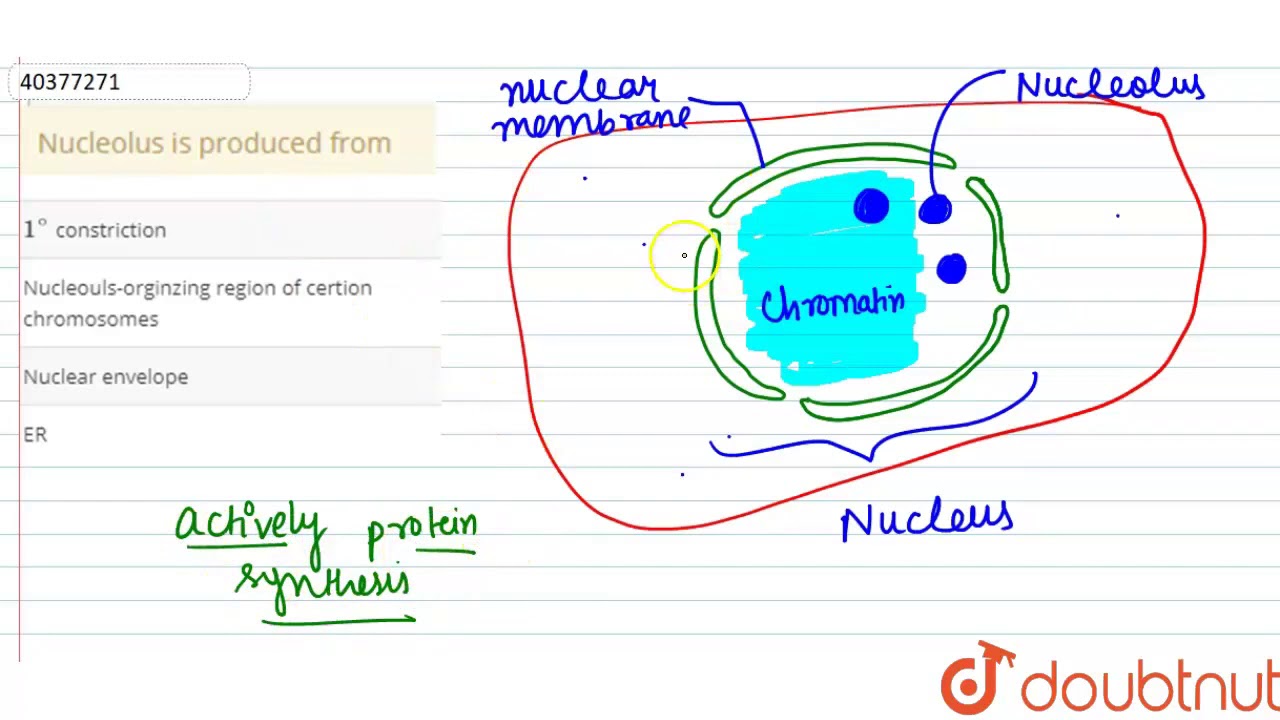 40377271
Nucleolus is produced from
1° constriction
Nucleouls-orginzing region of certion
chromosomes
Nuclear envelope
ER
nuclear
membrane
Nucleolus
Chromatin
Nucleus
actively protein
synthesis
doubtnut